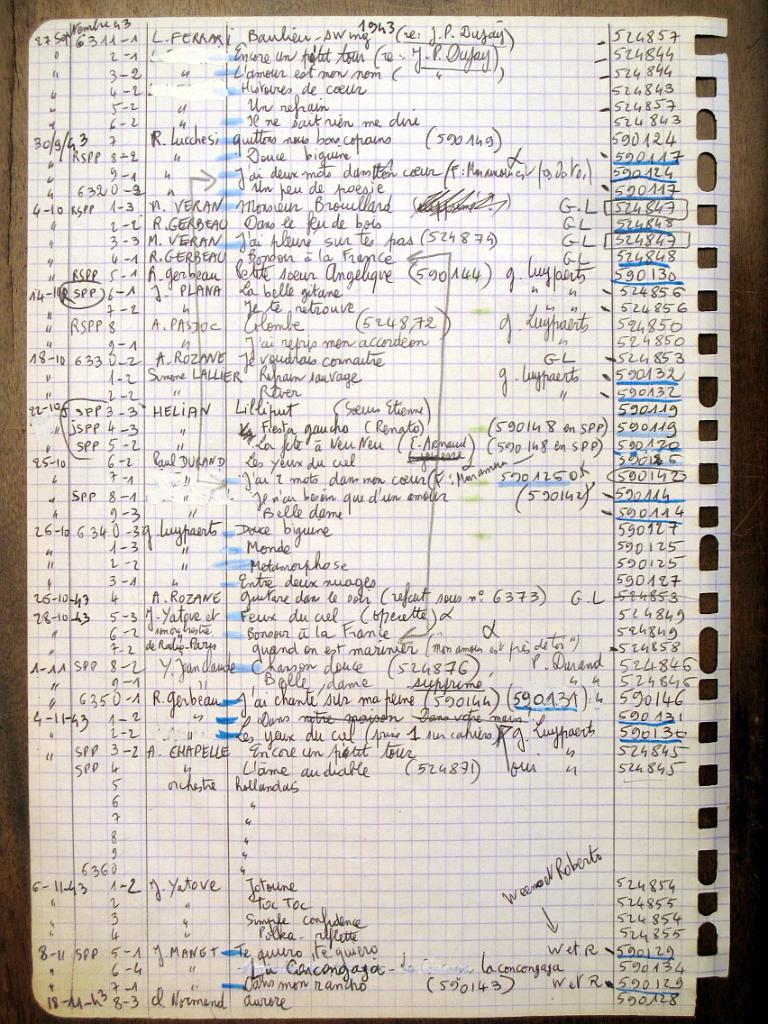 1943
27 Septembre 43 6311-1 L. FERRARI Baulieu-swing (re: J.P. Dujay) 524857
" 2-1 Encore un petit tour (re: J.P. Dujay) 524844
" 3-2 " L'amour est mon nom ( " ) 524844
" 4-2 Histoires de coeur 524843
5-2 " Un refrain 524857
" 6-2 " Il ne sait rien me dire 524843
30/9/43 7 R. Lucchesi quittons nous bons copains (590149) 590124
" RSPP 8-2 " Douce biguine 590117
" 9-1 " J'ai deux mots dans ton coeur 590124
" 6320-2 " Un peu de poesie 590117
4-10 RSPP 1-3 M. VERAN Monsieur Brouillard G.L 524847
" 2-2 R. GERBEAU Dans le feu de bois GL 524848
" 3-3 M. VERAN J'ai pleuré sur tes pas (524874) GL 524847
" 4-1 R. GERBEAU Bonsoir à la France GL 524848
RSPP 5-1 R. gerbeau Petite soeur Angélique (590144) g. Luypaerts 590130
14-10 RSPP 6-1 J. PLANA La belle gitane " " 524856
" 7-2 " Je te retrouve " " 524856
RSPP 8 A. PASDOC Colombe (524872) g. Luypaerts 524850
" 9-1 " J'ai repris mon accordeon 524850
18-10 6330-2 A. ROZANE Je voudrais connaitre GL 524853
" 1-2 Simone LALLIER Refrain sauvage g. Luypaerts 590132
" 2-2 " Rêver " 590132
22-10 JSPP 3-3 HELIAN Lilliput (Soeurs Etienne) 590119
" JSPP 4-3 " Fiesta gaucho (Renato) (590148 en SPP) 590119
SPP 5-2 " La fete à Neu Neu (E. Arnaud) (590148 en SPP) 590120
25-10 6-2 Paul DURAND Les yeux du ciel 590126
" 7-1 " J'ai 2 mots dans mon coeur 590125 590142
SPP 8-1 " Je n'ai besoin que d'un amour (590142) 590114
9-3 " Belle dame 590114
26-10 6340-3 g. Luypaerts Douce biguine 590127
" 1-3 " Monde 590125
" 2-2 " Metamorphose 590125
3-1 " Entre deux nuages 590127
26-10-43 4 A. ROZANE guitare dans le soir (refait sous n° 6373) G.L 524853
28-10-43 5-3 J. Yatove et Feux du ciel (operette) 524849
" 6-2 son orchestre Bonsoir à la France 524849
" 7-2 de Radio-Paris quand on est marinier (mon amour est près de toi") 524858
1-11 SPP 8-2 Y. Jeanclaude Chanson douce (524876) P. Durand 524846
" 9-1 " Belle dame supprimé " " 524846
" 6350-1 R. gerbeau J'ai chanté sur ma peine (590144) (590131) " 590146
4-11-43 1-2 " Dans notre maison Dans votre main 590131
" 2-2 " Les yeux du ciel (puis 1 sur cahier) g. Luypaerts 590130
" SPP 3-2 A. CHAPELLE Encore un petit tour " 524845
SPP 4 " L'âme au diable (524871) oui " 524845
5 orchestre Hollandais
6 "
7 "
8 "
9 "
6360 "
Weenoet Roberto
6-11-43 1-2 J. Yatove Totoune 524854
" 2 " Toc Toc 524855
" 3 " Simple confidence 524854
" 4 " Polka-reflette 524855
8-11 SPP 5-1 J. MANET Te quiero, te quiero W et R 590129
" 6-4 " La Concongaga la concongaga 590134
" 7-1 " Dans mon rancho (590143) W et R 590129
18-11-43 8-3 d. Normand aurore 590128